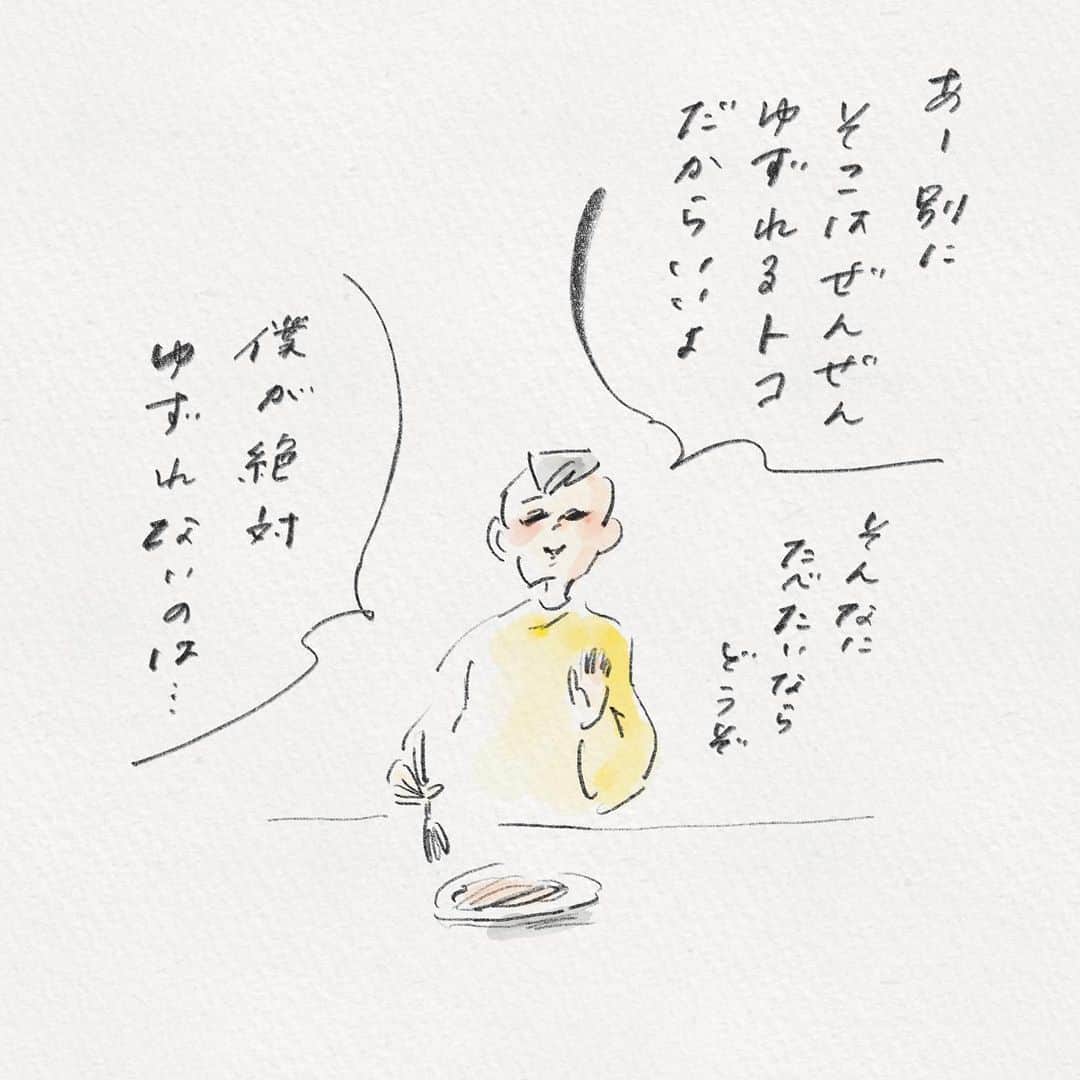 あー別に
そこはぜんぜん
ゆずれるトコ
だからいいよ
そんなに
たべたいなら
どうぞ
僕が絶対
ゆずれないのは…